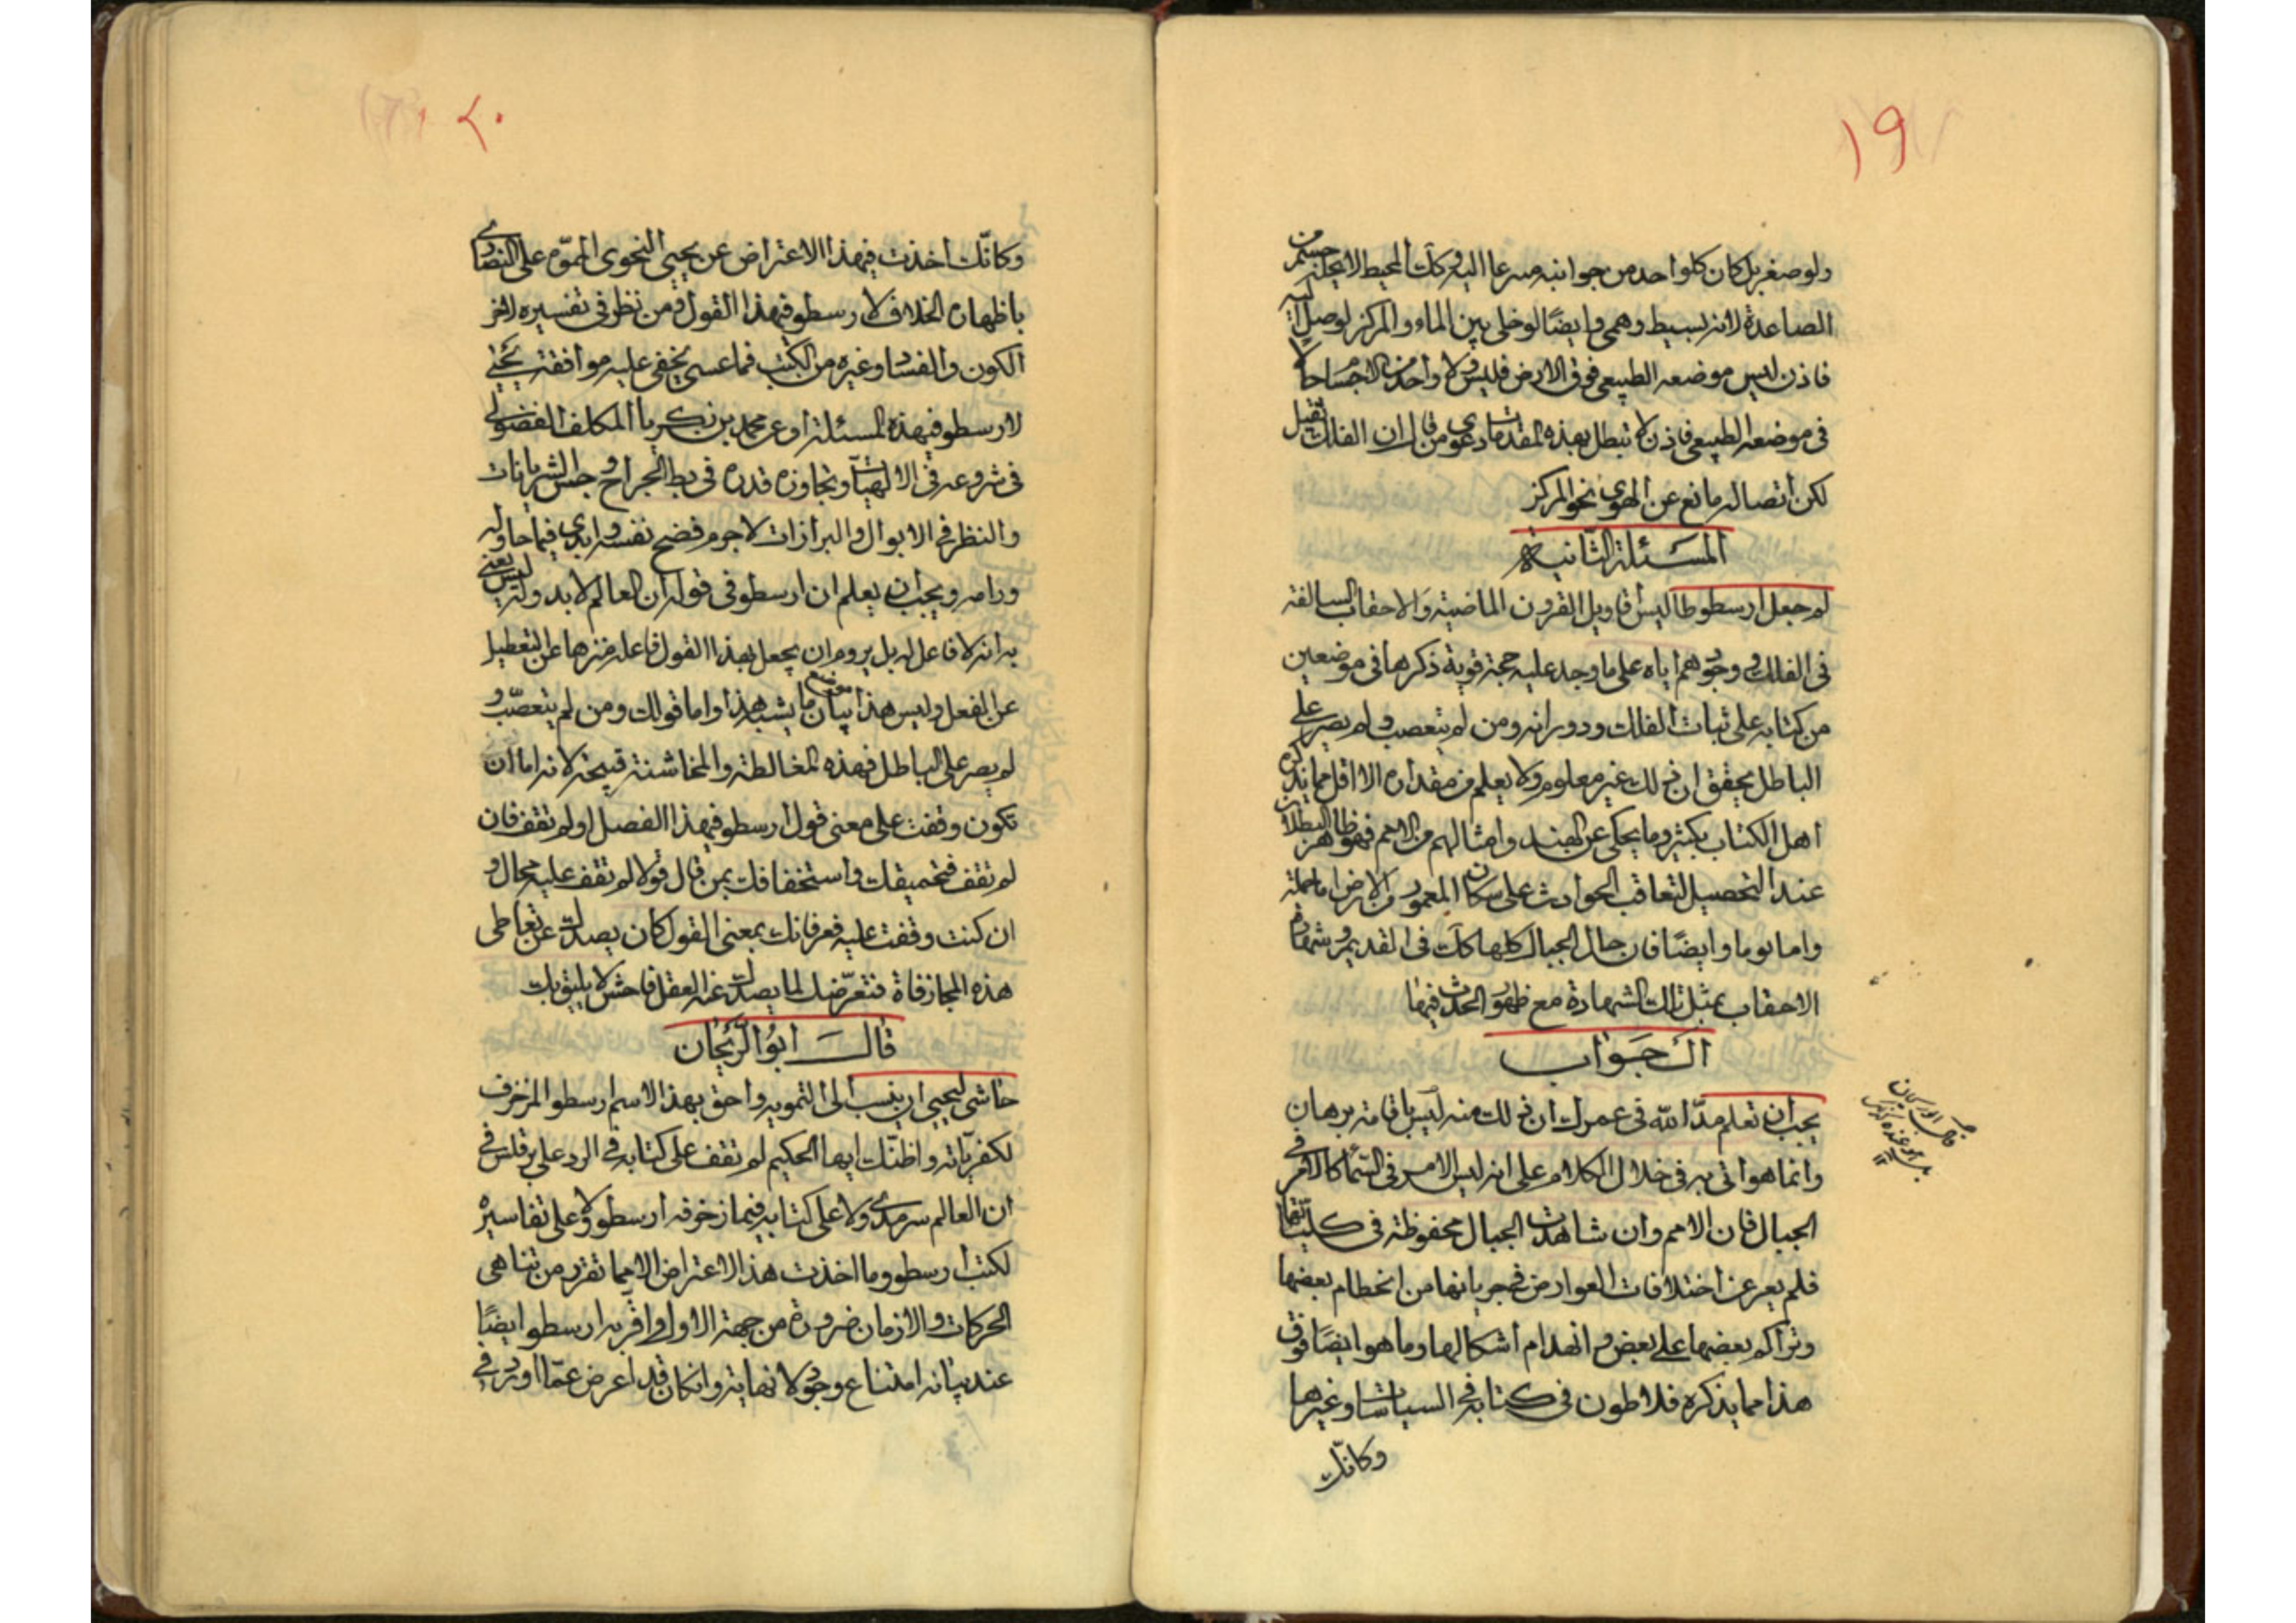 ١٩
ولو صغر بل كان كل واحد من جوانبه مسرعا اليه وكك المحيط لا يجذب جسم من
الصاعدة لانه بسيط وهمى وايضًا لو خلى بين الماء والمركز لوصل اليه
فاذن ليس موضعه الطبيعى فوق الارض فليس ولا واحد من الاجسام حالا
فى موضعه الطبيعى فاذن لا تبطل بهذه المقدمات دعوى من قال ان الفلك ثقيل
لكن اتصاله مانع عن الهوى نحو المركز
المسئلة الثانية
لم جعل ارسطوطاليس اقاويل القرون الماضية والاحقاب السالفة
فى الفلك ووجودهم اياه على ما وجد عليه حجة قوية ذكرها فى موضعين
من كتابه على ثبات الفلك ودورانه ومن لم يتعصب ولم يصر على
الباطل يحقق ان ذلك غير معلوم ولا يعلم من مقداره الا اقل مما يذكره
اهل الكتاب بكثير وما يحكى عن الهند وامثالهم من الامم فهو ظاهر البطلان
عند التحصيل لتعاقب الحوادث على سكان المعمور من الارض اما جملة
واما نوما وايضًا فان حال الجبال كلها كك فى القديم وشهادة
الاحقاب بمثل تلك الشهادة مع ظهور الحدث فيها
الجواب
يجب ان تعلم مدّ الله فى عمرك ان ذلك منه ليس باقامة برهان
وانما هو اتى به فى خلال الكلام على انه ليس الامر فى السّماء كالامر فى
الجبال فان الامم وان شاهدت الجبال محفوظة فى كليّاتها
فلم يعر عن اختلافات العوارض فى جرياتها من انحطام بعضها
وتراكم بعضها على بعض وانهدام اشكالها وما هو ايضًا فوق
هذا مما يذكره فلاطون فى كتابه فى السياسات وغيرها
وكانّك
٢٠
وكانّك اخذت فى هذا الاعتراض عن يحيى النحوى المموّه على النصارى
باظهاره الخلاف لارسطو فى هذا القول ومن نظر فى تفسيره لاخر
الكون والفساد وغيره من الكتب فما عسى يخفى عليه موافقة يحيى
لارسطو فى هذه المسئلة او عن محمد بن زكريا المكلف الفضولى
فى شروعه فى الالهيات وتجاوزه قدره فى بط الجراح وجس الشريانات
والنظر فى الابوال والبرازات لاجرم فضح نفسه وابدى فيما حاوله
ورامه ويجب ان يعلم ان ارسطو فى قوله ان العالم لا بدو له ليس يعنى
به انه لا فاعل له بل يروم ان يجعل بهذا القول فاعله منزها عن التعطيل
عن الفعل وليس هذا موضع بيان ما يشبه هذا واما قولك ومن لم يتعصّب و
لم يصر على الباطل فهذه المغالطة والمخاشنة قبيحة لانه اما ان
تكون وقفت على معنى قول ارسطو فى هذا الفصل او لم تقف فان
لم تقف فتحميقك واستخفافك بمن قال قولا لم تقف عليه محال و
ان كنت وقفت عليه فعرفانك بمعنى القول كان يصدك عن تعاطى
هذه المجازفاة فتعرّضك لما يصدك عنه العقل فاحش لا يليق بك
قال ابو الريحان
حاشى ليحيى ان ينسب الى التمويه واحق بهذا الاسم ارسطو المزخرف
لكفرياته واظنّك ايها الحكيم لم تقف على كتابه فى الرد على برقلس فى
ان العالم سرمدى ولا على كتابه فيما زخرفه ارسطو ولا على تفاسيره
لكتب ارسطو وما اخذت هذا الاعتراض الا مما تقرر من تناهى
الحركات والازمان ضرورة من جهة الاول واقر به ارسطو ايضًا
عند بيانه امتناع وجود لا نهاية وان كان قد اعرض عمّا اورد فى